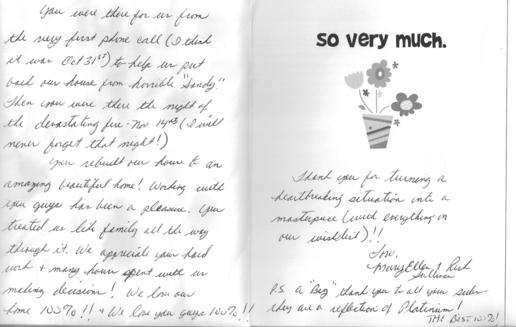 You were there for us from
the very first phone call (I think
it was Oct 31st) to help us put
back our house from horrible "Sandy."
Then you were there the night of
the devastating fire - Nov 14th (I will
never forget that night!)
You rebuilt our house to an
amazing beautiful home! Working with
you guys has been a pleasure. You
treated us like family all the way
through it. We appreciate your hard
work + many hours spent with us
making decisions! We love our
home 100%!! + We love you guys 100%!!
so very much.
Thank you for turning a
heartbreaking situation into a
masterpiece (with everything on
our wishlist)!!
Love,
MaryEllen & Rich
Sullivan
P.S. A "Big" thank you to all your subs -
they are a reflection of Platinum!
THE BEST 100%!